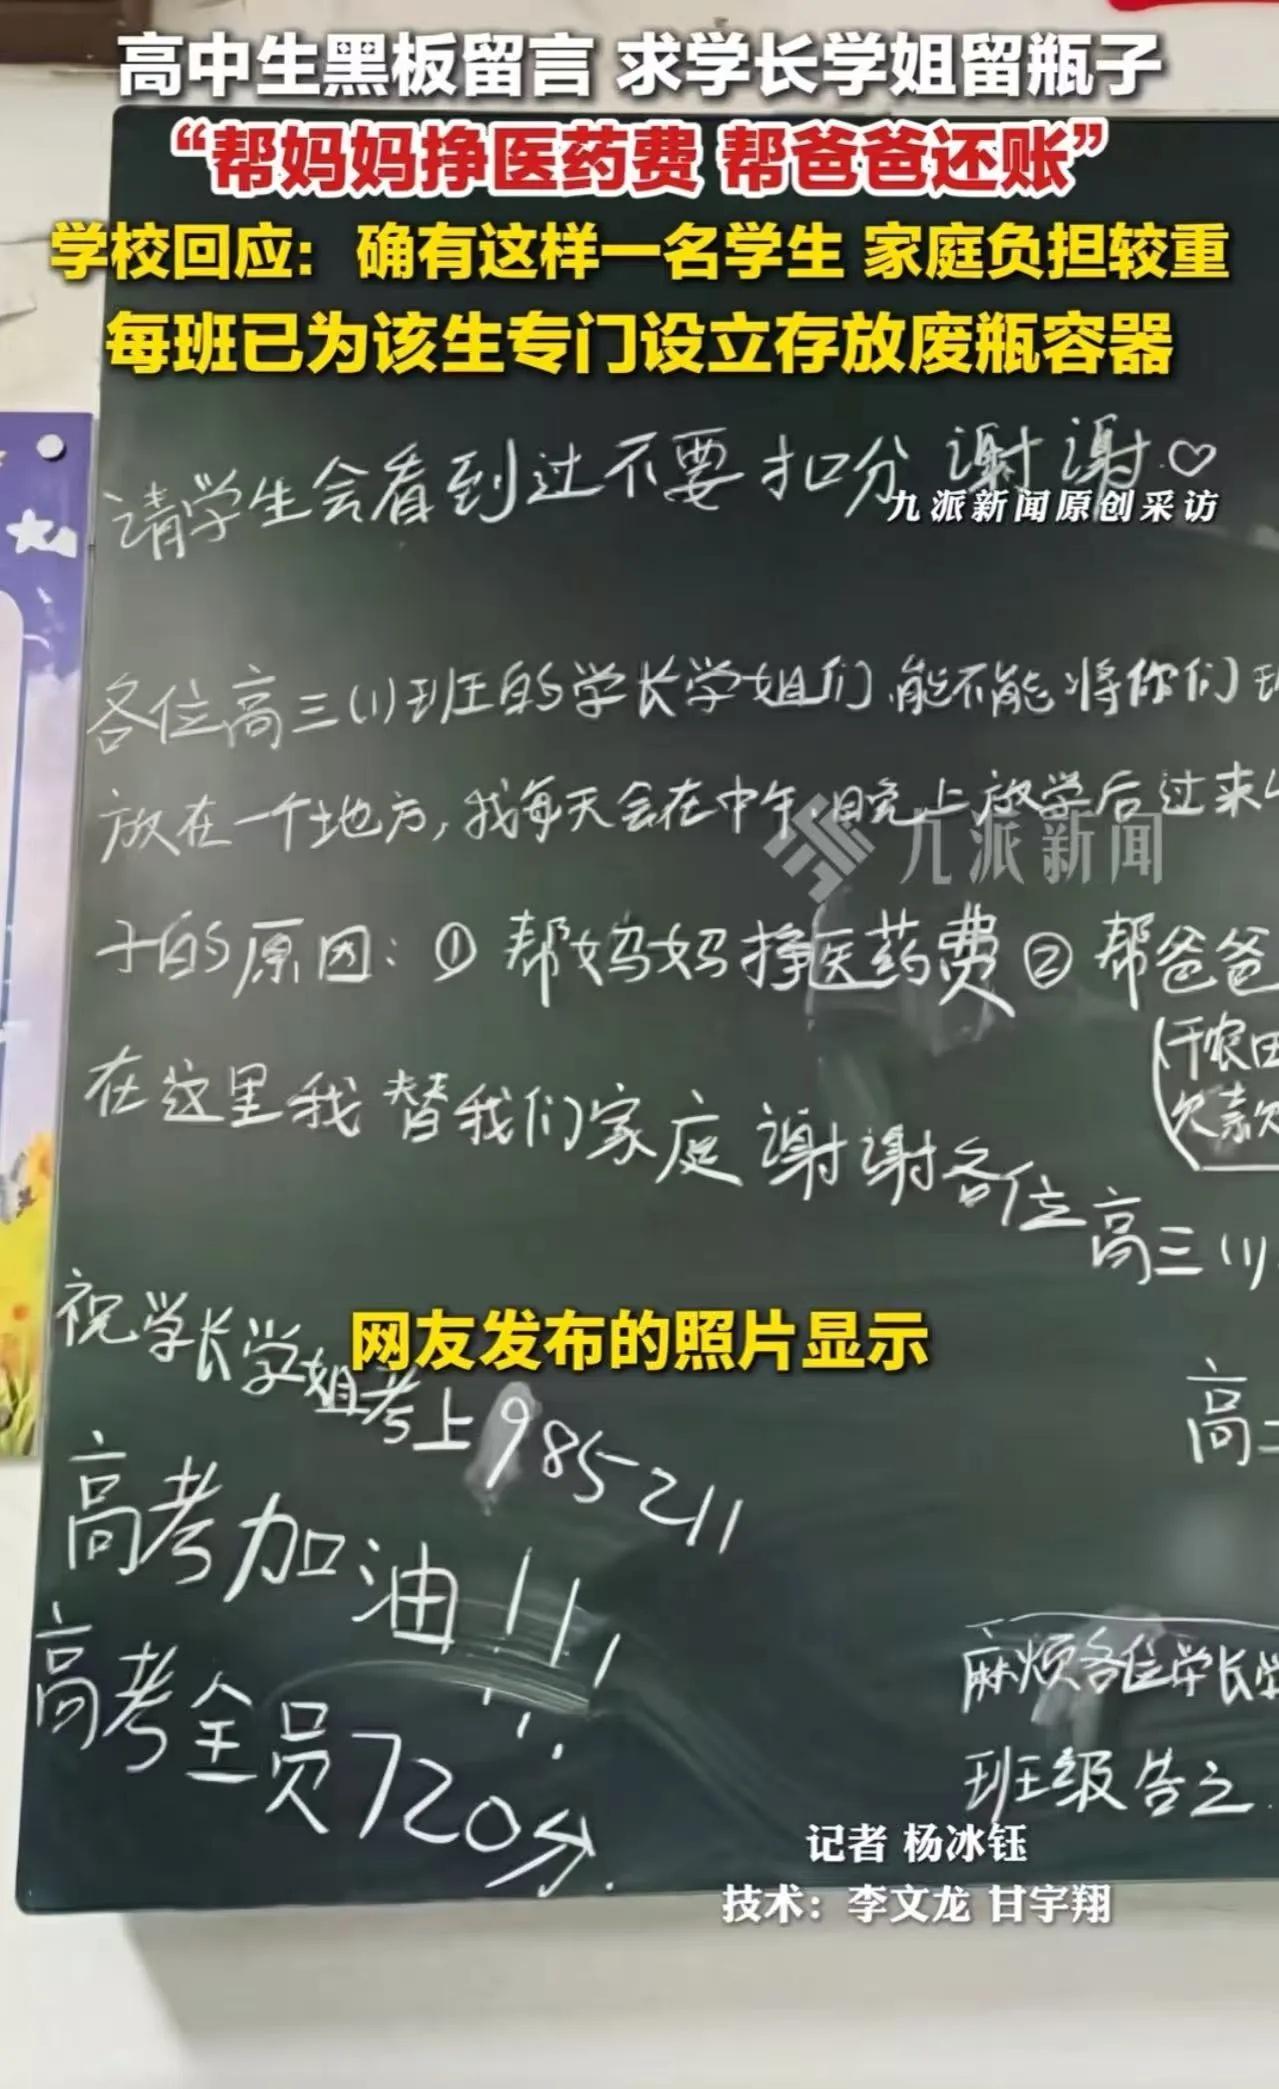 高中生黑板留言 求学长学姐留瓶子
“帮妈妈挣医药费 帮爸爸还账”
学校回应：确有这样一名学生 家庭负担较重
每班已为该生专门设立存放废瓶容器
请学生会看到过不要扣分 谢谢♡
九派新闻原创采访
各位高三(1)班的学长学姐们,能不能将你们
放在一个地方,我每天会在中午,晚上放学后过来
九派新闻
子的原因:①帮妈妈挣医药费②帮爸爸
(干农田
欠款
在这里我替我们家庭谢谢各位高三(1)
祝学长学姐考上985 211
网友发布的照片显示
高
高考加油!!!
高考全员720分.
麻烦各位学长
班级告之.
记者 杨冰钰
技术：李文龙 甘宇翔